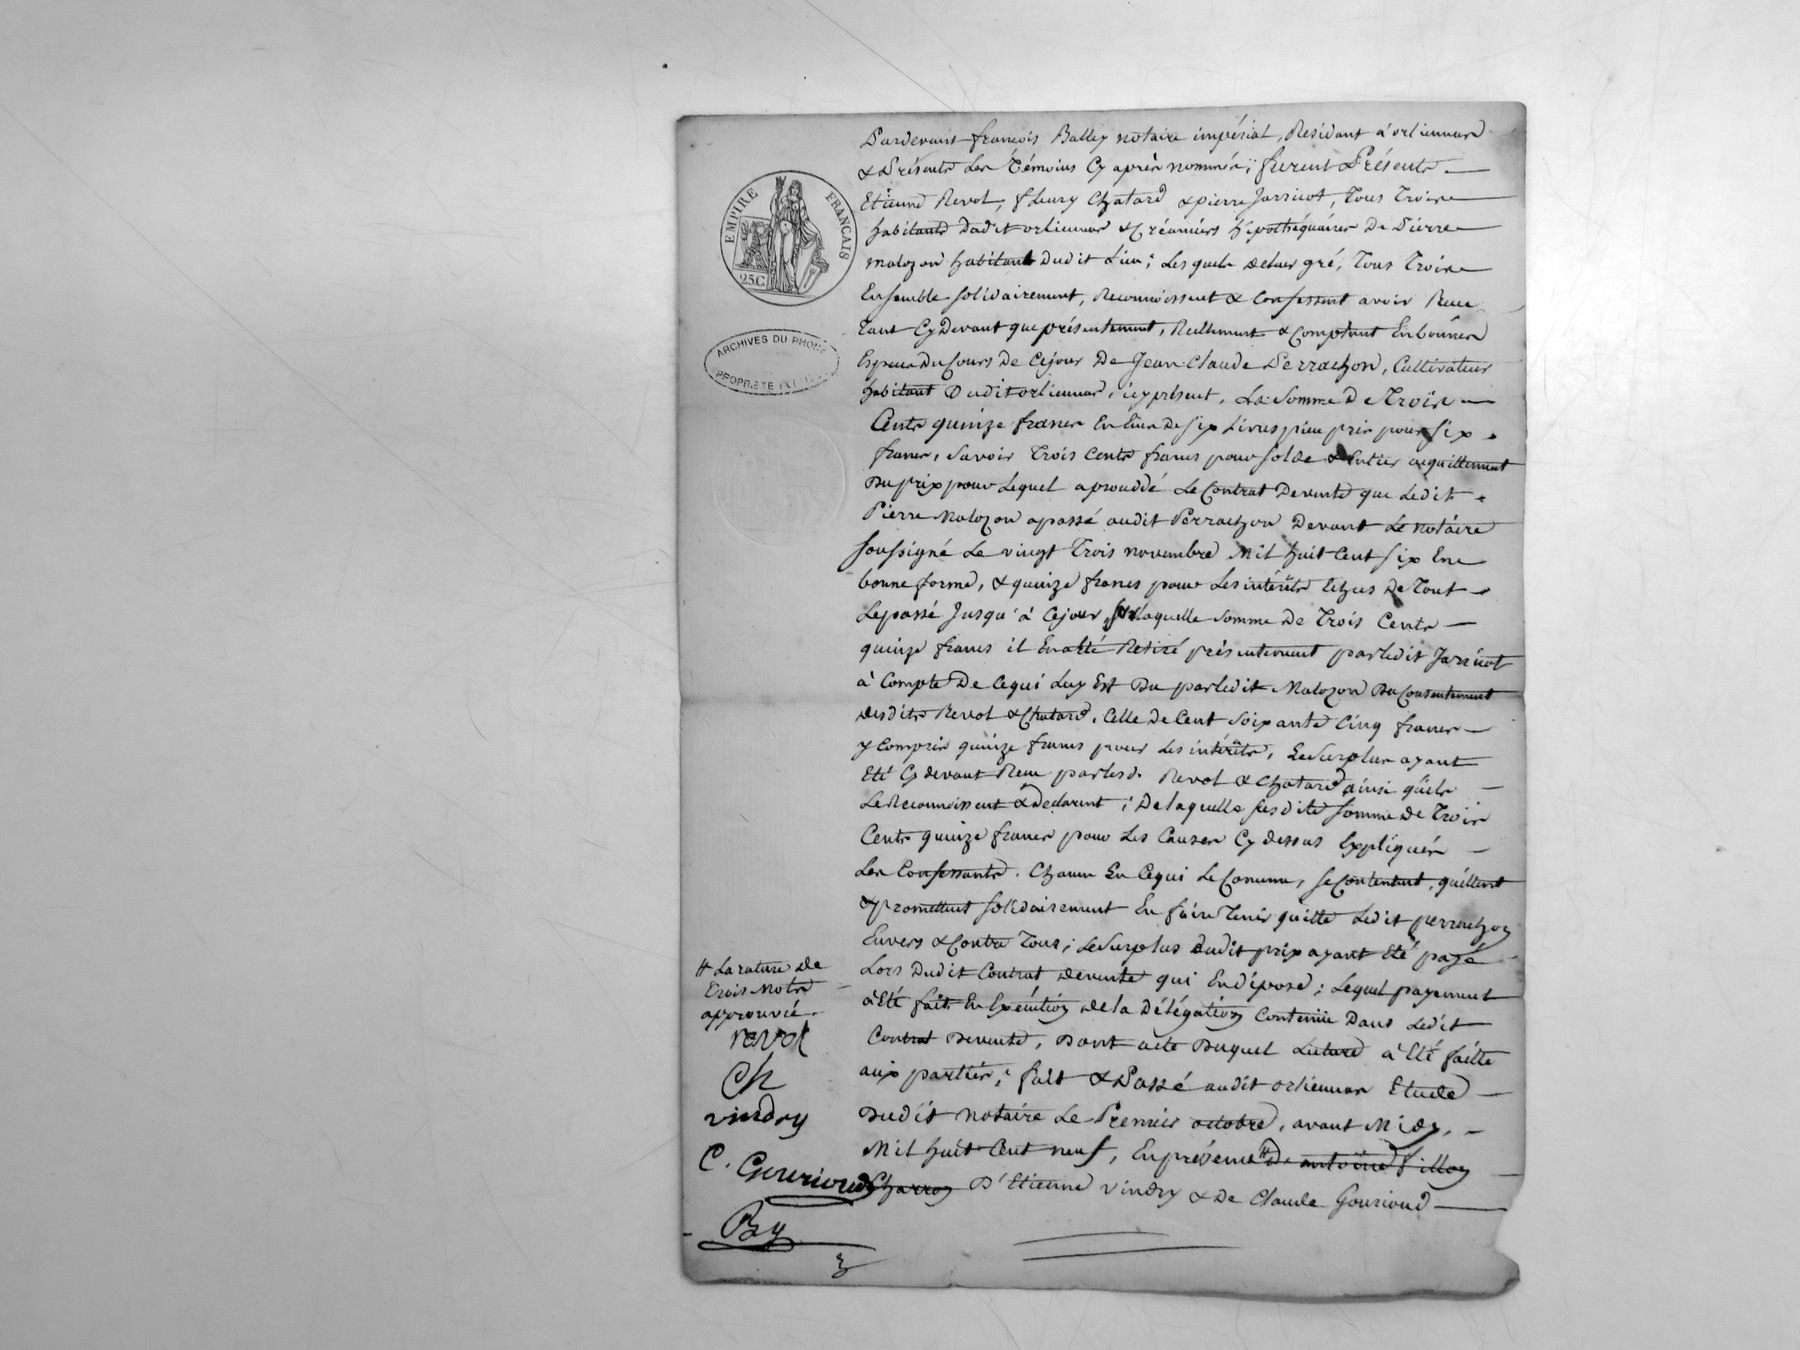 Pardevant françois Balley notaire impérial, Résidant à orliennas
& Présents Les Témoins Cy après nommés; furent Présents
Etienne Revol, fleury Chatard & pierre Jarricot, Tous Trois
habitants dudit orliennas & Créanciers hipothéquaires De Pierre
malozon habitant dudit Lieu; Lesquels deleur gré, Tous Trois
Ensemble solidairement, Reconnoissent & Confessent avoir Reçu
Tant Cy Devant que présentement, Réellement & Comptant En bonnes
Especes Du Cours De Cejour De Jean-Claude Perrachon, Cultivateur
habitant Dudit orliennas, icy présent, La Somme De Trois
Cents quinze francs En lieu De six Livres pieu pris pour six
francs, Savoir Trois Cents francs pour solde & Entier acquittement
Du prix pour Lequel a procédé Le Contrat De vente que Ledit
Pierre Malozon a passé audit Perrachon Devant Le notaire
soussigné Le vingt Trois novembre Mil huit Cent six En
bonne forme, & quinze francs pour Les intérêts Echus De Tout
Lepassé Jusqu'à Cejour, sur laquelle Somme De Trois Cents
quinze francs il En a Eté Retiré présentement parledit Jarricot
à Compte De Cequi Luy Est Du parledit Malozon Du Consentement
desdits Revol & Chatard, Celle De Cent soixante Cinq francs
y Compris quinze francs pour Les intérêts, Le Surplus ayant
Eté Cy devant Reçu parlesd. Revol & Chatard ainsi qu'ils
Le Reconnoissent & Declarent; De laquelle susdite somme De Trois
Cents quinze francs pour Les Causes Cy dessus Expliquées
Les Confessants. Chacun En Cequi Le Concerne, se Contentent, quittent
& promettent solidairement En faire Tenir quitte Ledit perrachon
Envers & Contre Tous; Le Surplus dudit prix ayant Eté payé
Lors Dudit Contrat De vente qui En dépose; Lequel payement
à Eté fait En Exécution de la Délégation Contenüe Dans Ledit
Contrat De vente, Dont acte Duquel Lecture à Eté faitte
aux parties; fait & Passé audit orliennas Etude
Dudit notaire Le Premier octobre, avant Midy,
Mil huit Cent neuf, En présence # De antoine Pilloy
Charroy D'Etienne Vindry & De Claude Gourioud
# La rature de
Trois Mots
approuvée.
revol
Ch
vindry
C. Gourioud
By
EMPIRE FRANÇAIS
25C.
ARCHIVES DU RHONE
PROPRIETE PUBLIQUE